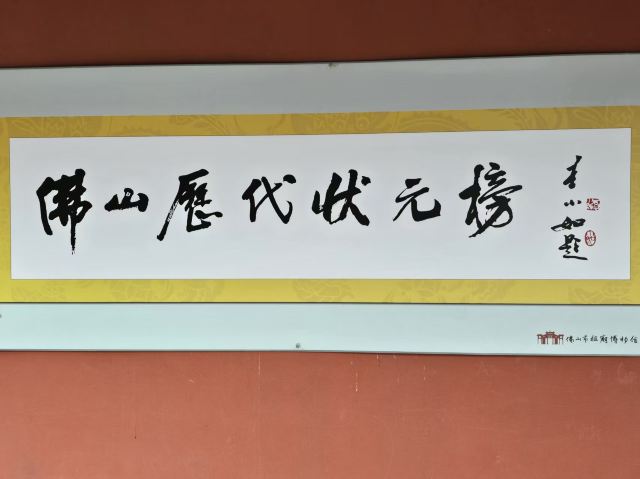 佛山歷代状元榜
李小如題
佛山市祖廟博物馆